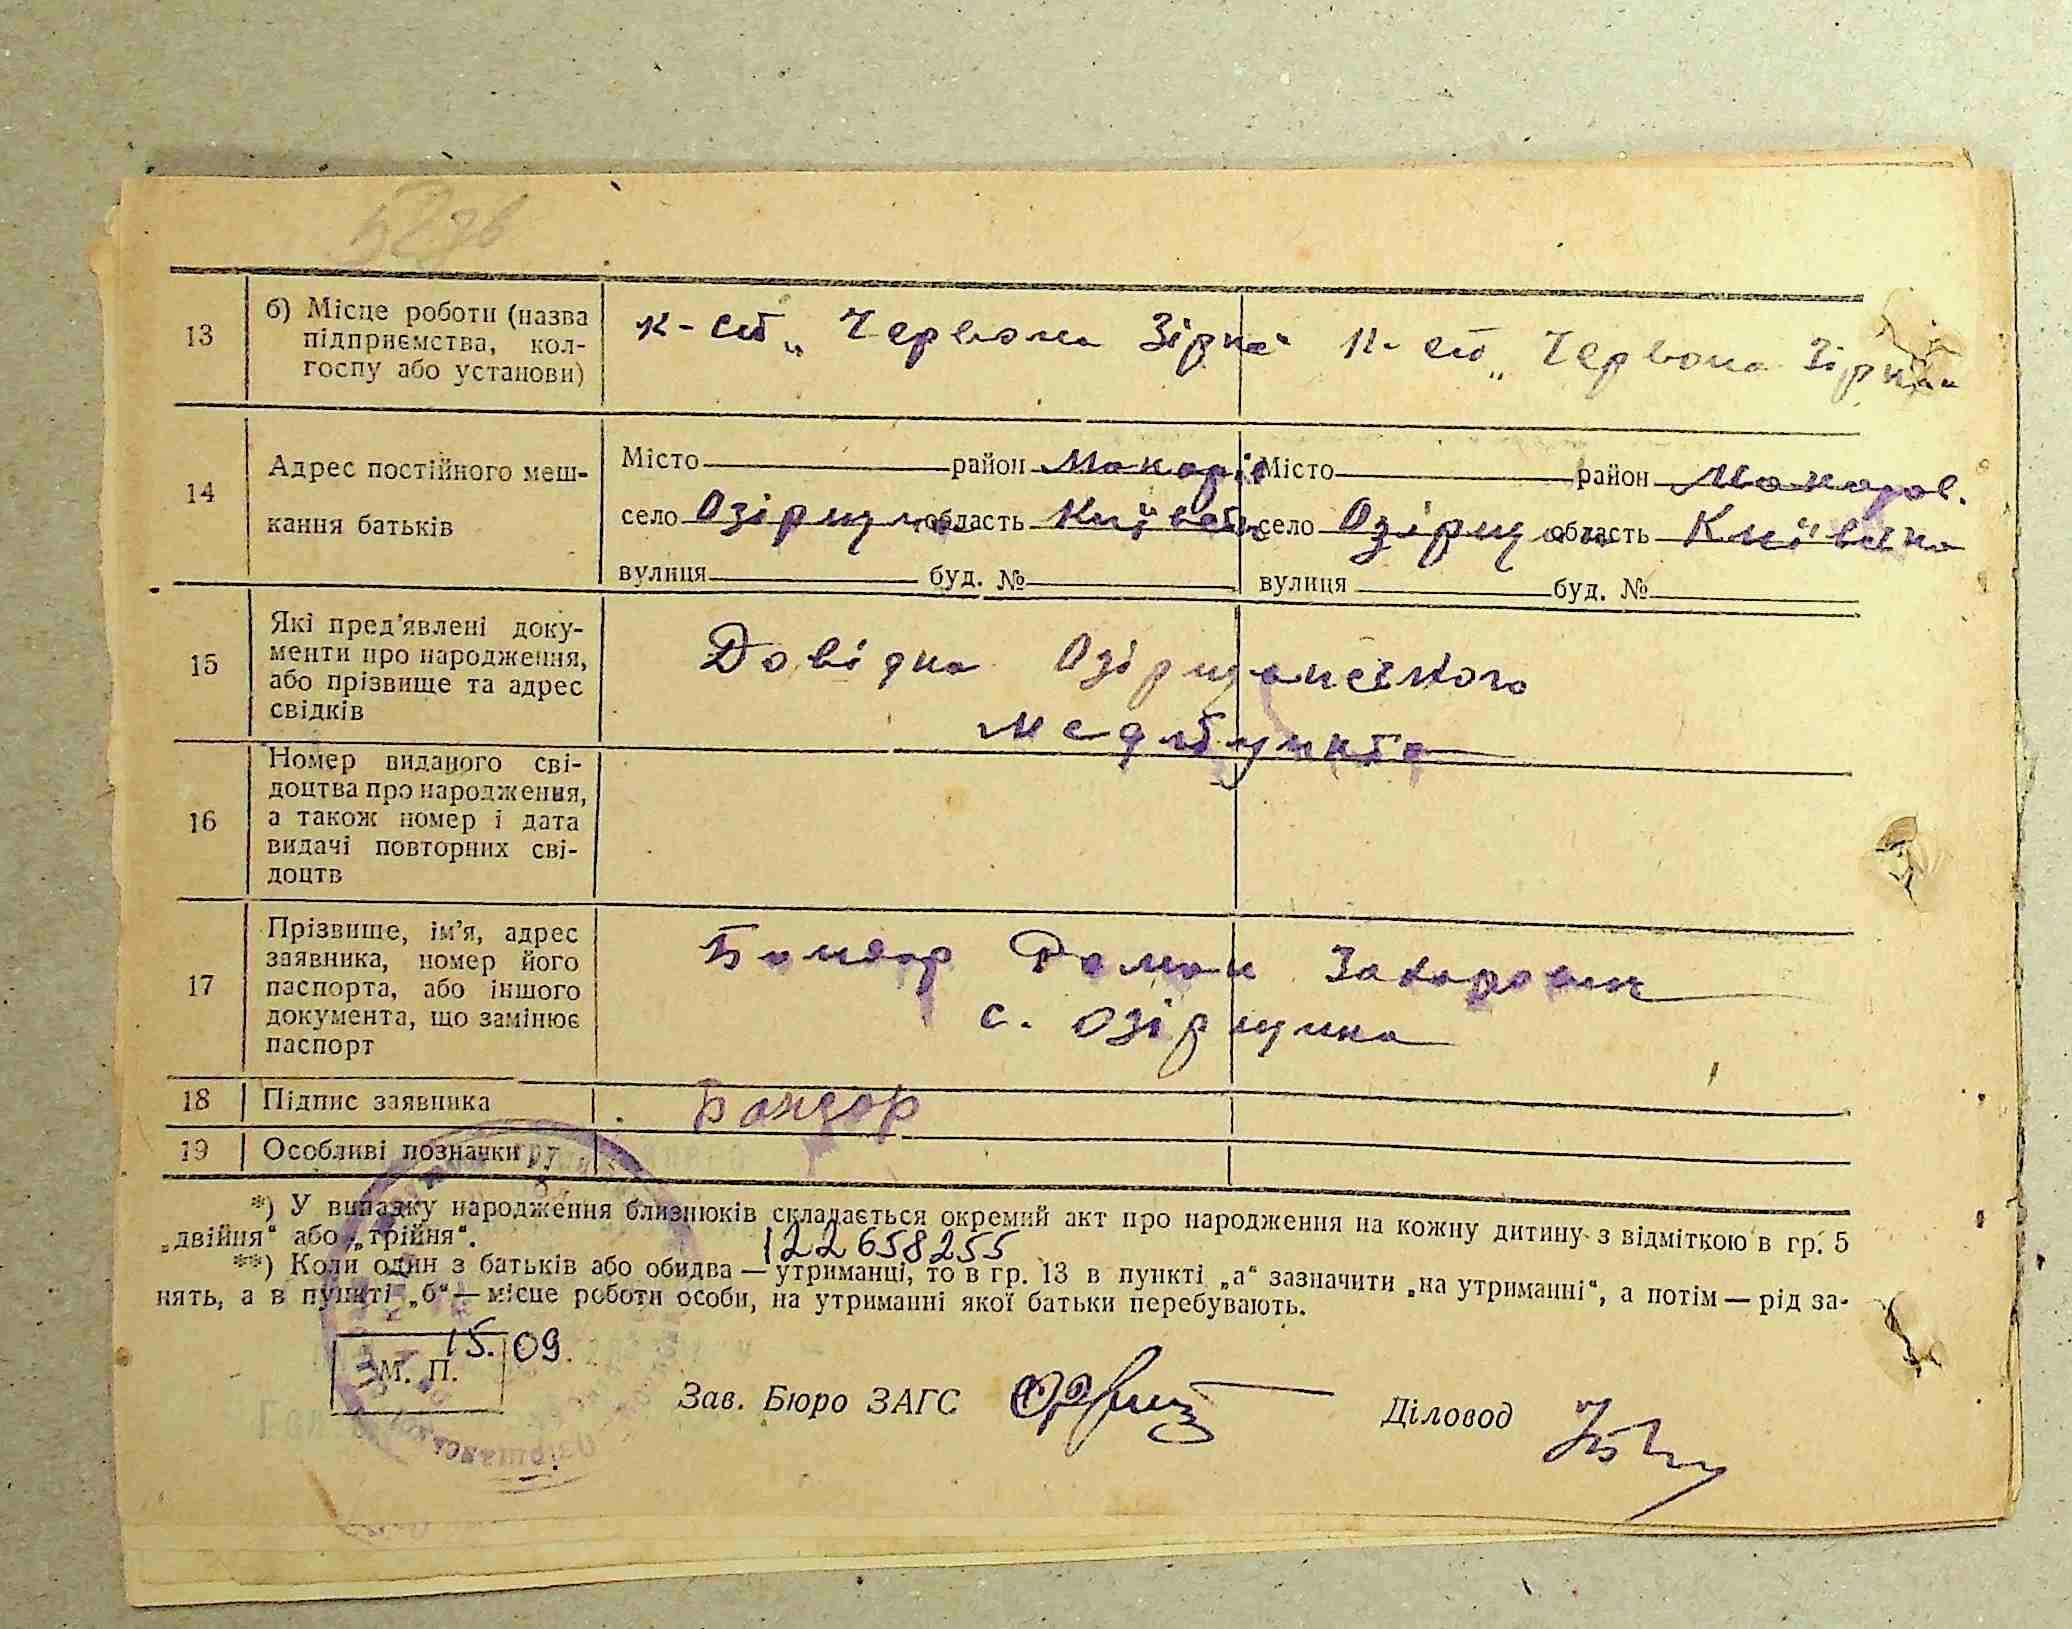 13 б) Місце роботи (назва підприємства, кол-
госпу або установи)
к-сп „Червона Зірка“ к-сп „Червона Зірка“
14 Адрес постійного меш-
кання батьків
Місто район Макарів Місто район Макаров.
село Озірщина область Київськ село Озірщина область Київська
вулиця буд. № вулиця буд. №
15 Які пред'явлені доку-
менти про народження,
або прізвище та адрес
свідків
Довідка Озірщанського
медпункта
16 Номер виданого сві-
доцтва про народження,
а також номер і дата
видачі повторних сві-
доцтв
17 Прізвище, ім'я, адрес
заявника, номер його
паспорта, або іншого
документа, що замінює
паспорт
Бондар Роман Захарович
с. Озірщина
18 Підпис заявника Бондар
19 Особливі позначки
*) У випадку народження близнюків складається окремий акт про народження на кожну дитину з відміткою в гр. 5
„двійня“ або „трійня“.
122658255
**) Коли один з батьків або обидва — утриманці, то в гр. 13 в пункті „а“ зазначити „на утриманні“, а потім — рід за-
нять, а в пункті „б“ — місце роботи особи, на утриманні якої батьки перебувають.
15.09.
М. П.
Зав. Бюро ЗАГС Діловод